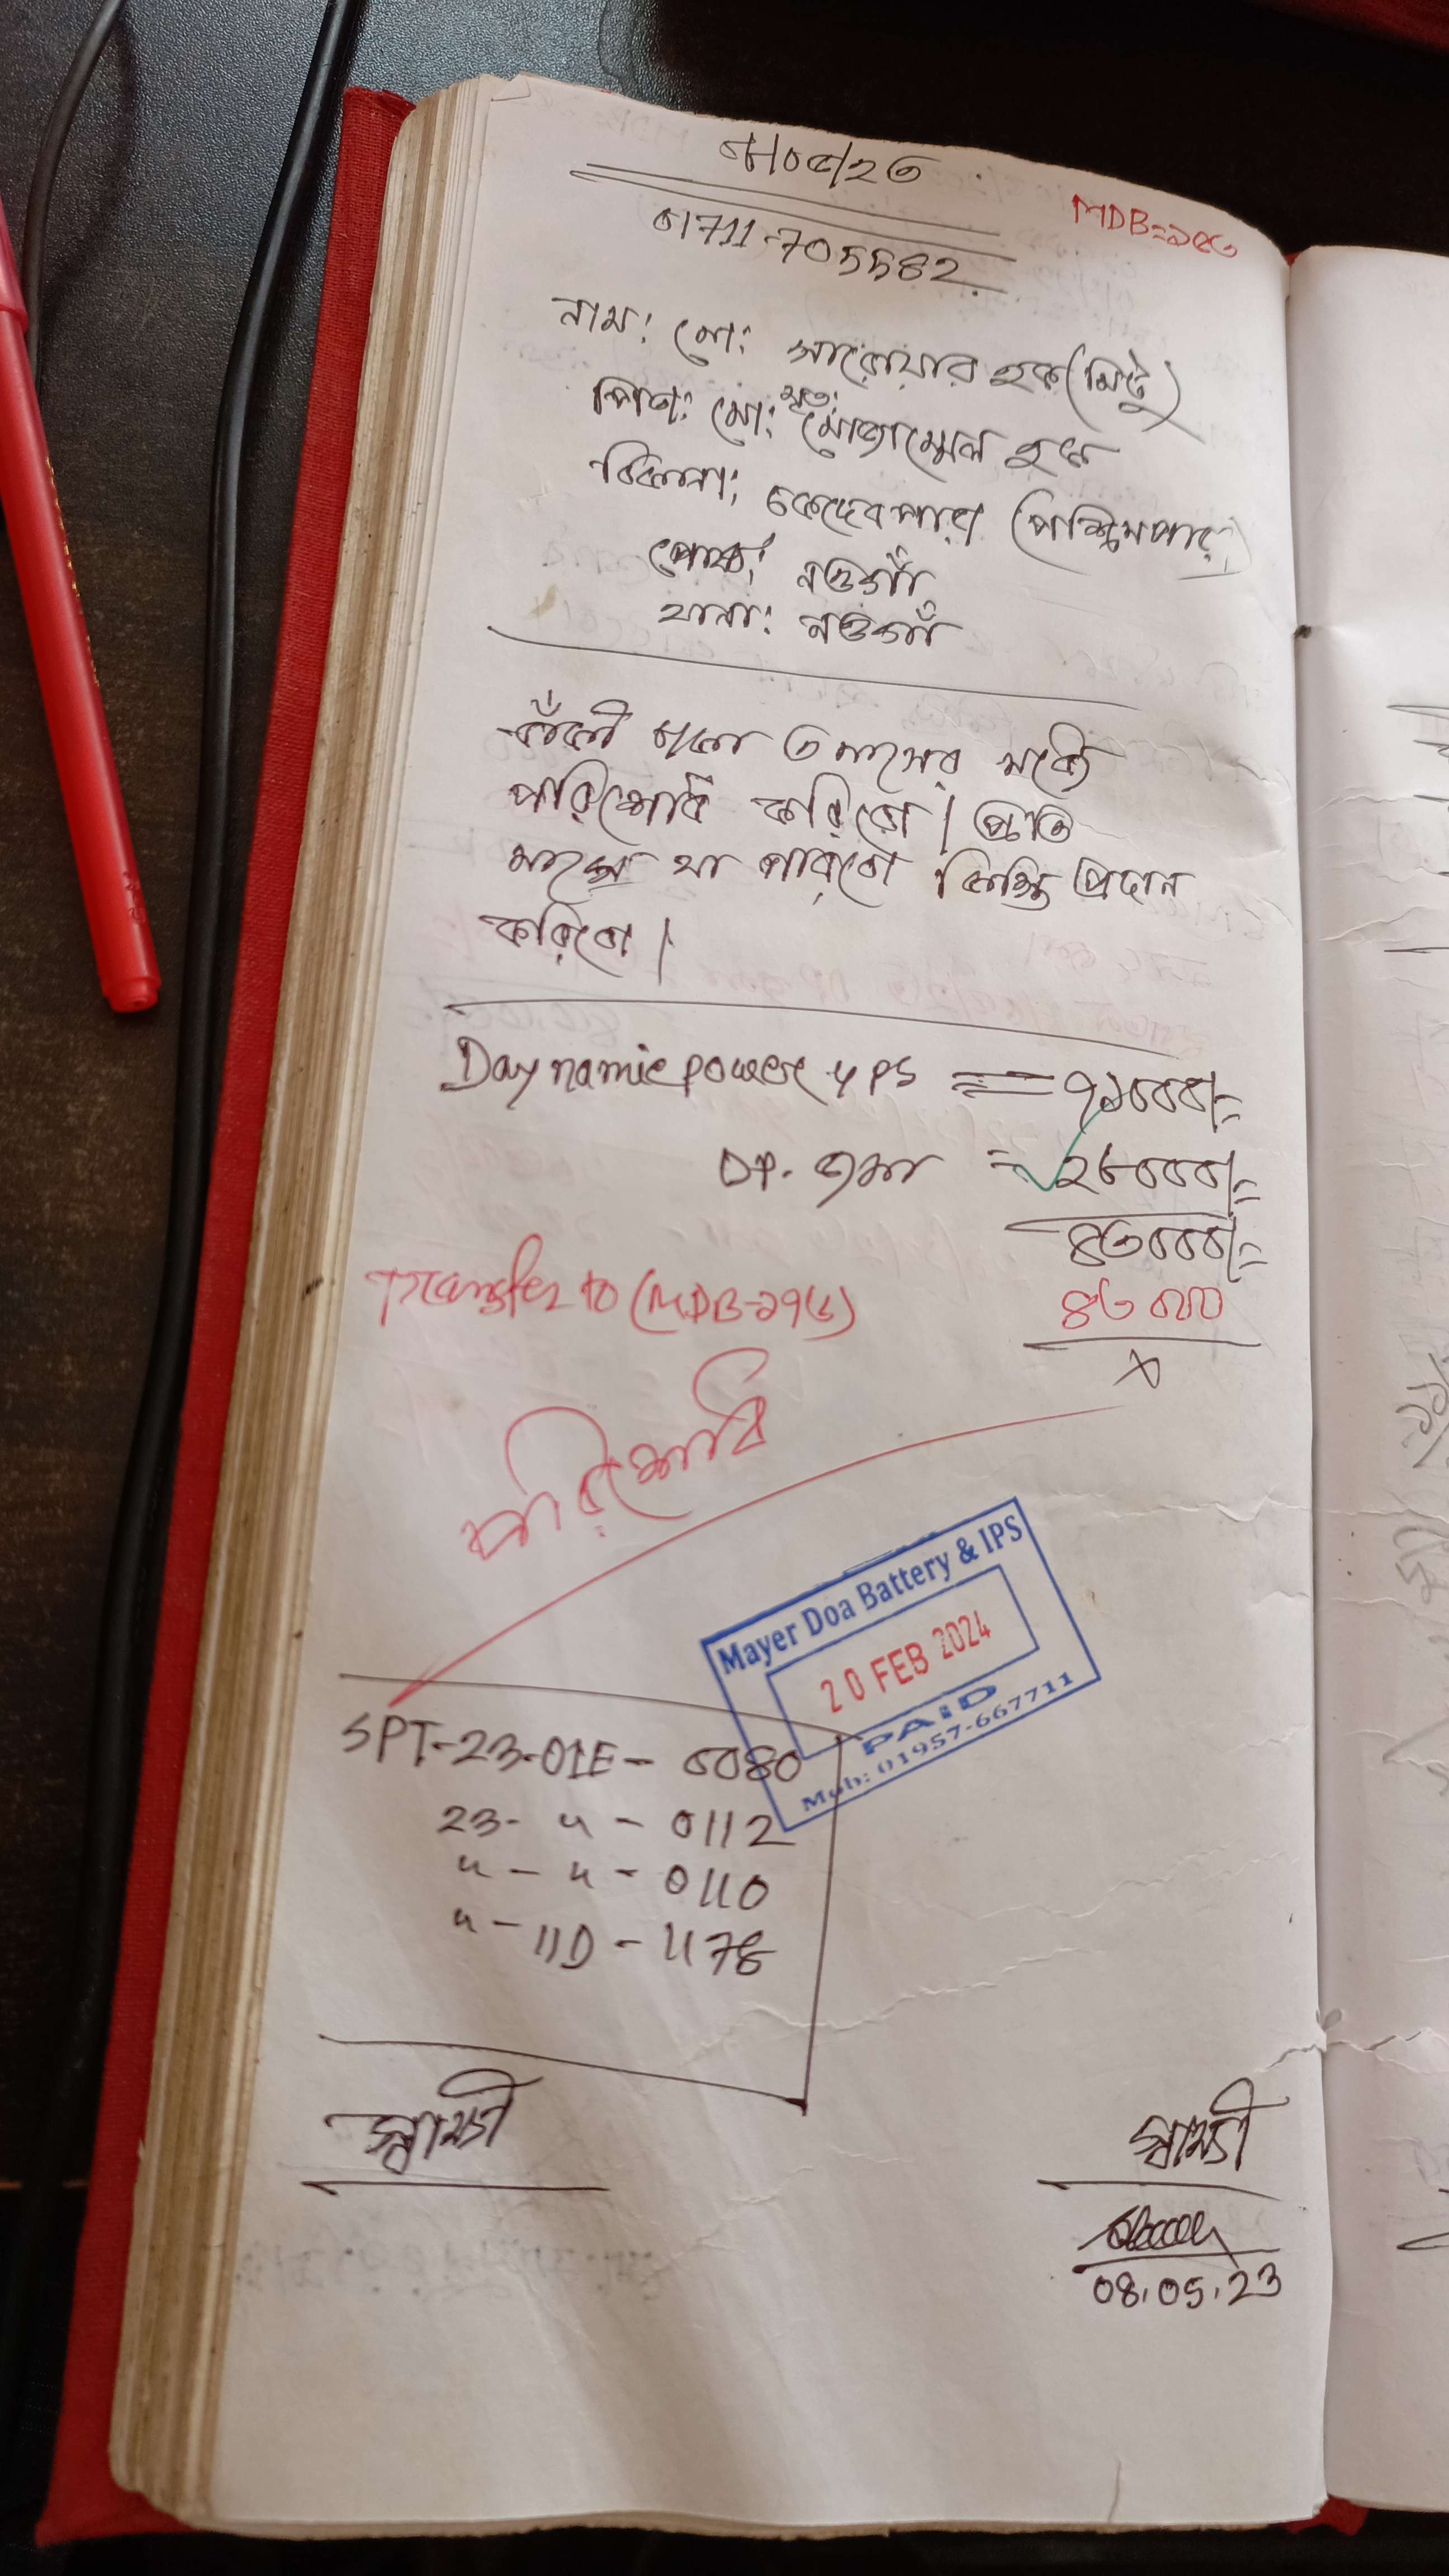 ০৮/০৫/২৩
MDB=১৫৩
01711-705582
নাম: মো: সারোয়ার হক (মিন্টু)
পিতা: মো: মৃত: মোজাম্মেল হক
ঠিকানা: চকদেব পাড়া (পশ্চিমপাড়া)
পোষ্ট: নওগাঁ
থানা: নওগাঁ
বাঁকী টাকা ৩ মাসের মধ্যে
পরিশোধ করিবো। প্রতি
মাসে যা পারবো কিস্তি প্রদান
করিবো।
Daynamic power ups = ৭১০০০/=
DP. জমা = ২৮০০০/=
৪৩০০০/=
Transfer to (MDB-১৭৬) ৪৩০০০
x
পরিশোধ
Mayer Doa Battery & IPS
20 FEB 2024
PAID
Mob: 01957-667711
SPT-23-01E-0080
23-〃-0112
〃-〃-0110
〃-11D-1178
স্বাক্ষী
স্বাক্ষী
08.05.23